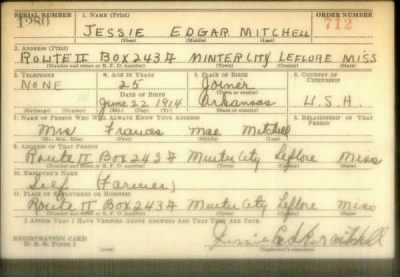 SERIAL NUMBER 1. NAME (Print) ORDER NUMBER
1280 JESSIE EDGAR MITCHELL 712
(First) (Middle) (Last)
2. ADDRESS (Print)
ROUTE II BOX 243A MINTER CITY LEFLORE MISS
(Number and street or R. F. D. number) (Town) (County) (State)
3. TELEPHONE 4. AGE IN YEARS 5. PLACE OF BIRTH 6. COUNTRY OF CITIZENSHIP
NONE 25 Joiner
DATE OF BIRTH (Town or county)
June 22 1914 Arkansas U.S.A.
(Exchange) (Number) (Mo.) (Day) (Yr.) (State or country)
7. NAME OF PERSON WHO WILL ALWAYS KNOW YOUR ADDRESS 8. RELATIONSHIP OF THAT PERSON
Mrs Frances Mae Mitchell
(Mr., Mrs., Miss) (First) (Middle) (Last)
9. ADDRESS OF THAT PERSON
Route II Box 243A Minter City Leflore Miss
(Number and street or R. F. D. number) (Town) (County) (State)
10. EMPLOYER'S NAME
Self (Farmer)
11. PLACE OF EMPLOYMENT OR BUSINESS
Route II Box 243A Minter City Leflore Miss
(Number and street or R. F. D. number) (Town) (County) (State)
I AFFIRM THAT I HAVE VERIFIED ABOVE ANSWERS AND THAT THEY ARE TRUE.
REGISTRATION CARD
D. S. S. Form 1 Jessie Edgar Mitchell
(Registrant's signature)